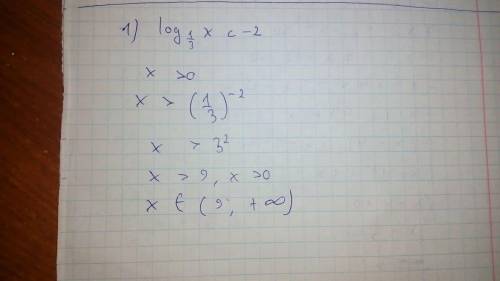 1) log_{1/3} x < -2
x > 0
x > (1/3)^{-2}
x > 3^2
x > 9, x > 0
x ∈ (9; +∞)